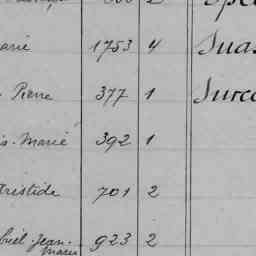 1753 4 Suas
Pierre 377 1 Surco
s-Marie 392 1
ristide 701 2
briel-Jean-Marie 923 2